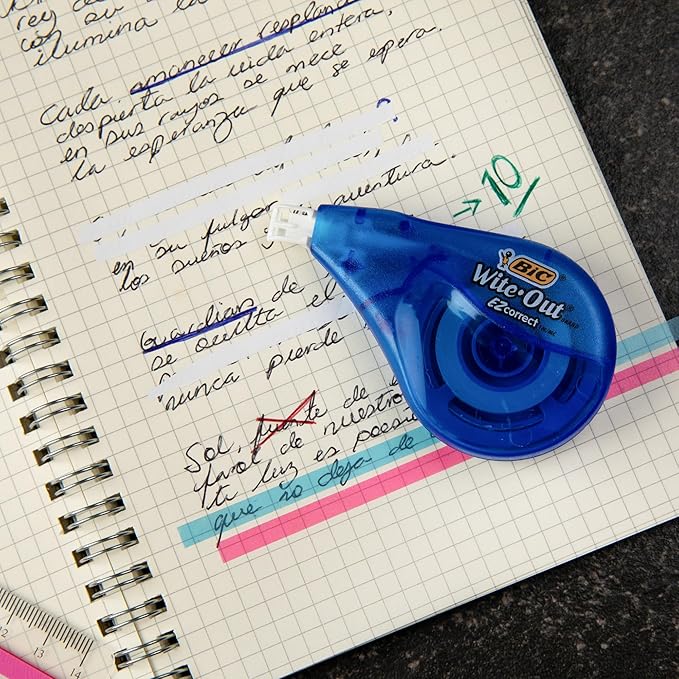 rey ce
cos su
ilumina la
Cada amanecer resplan
despierta la vida entera,
en sus rayos se mece
la esperanza que se espera.
en su fulgor
aventura.
los sueños
→ 10
Guardias de
se oculta el
nunca pierde
Sol, fuente de
farol de nuestro
tu luz es poesí
que no deja de
BIC
Wite·Out
BRAND
EZcorrect
12 13 14